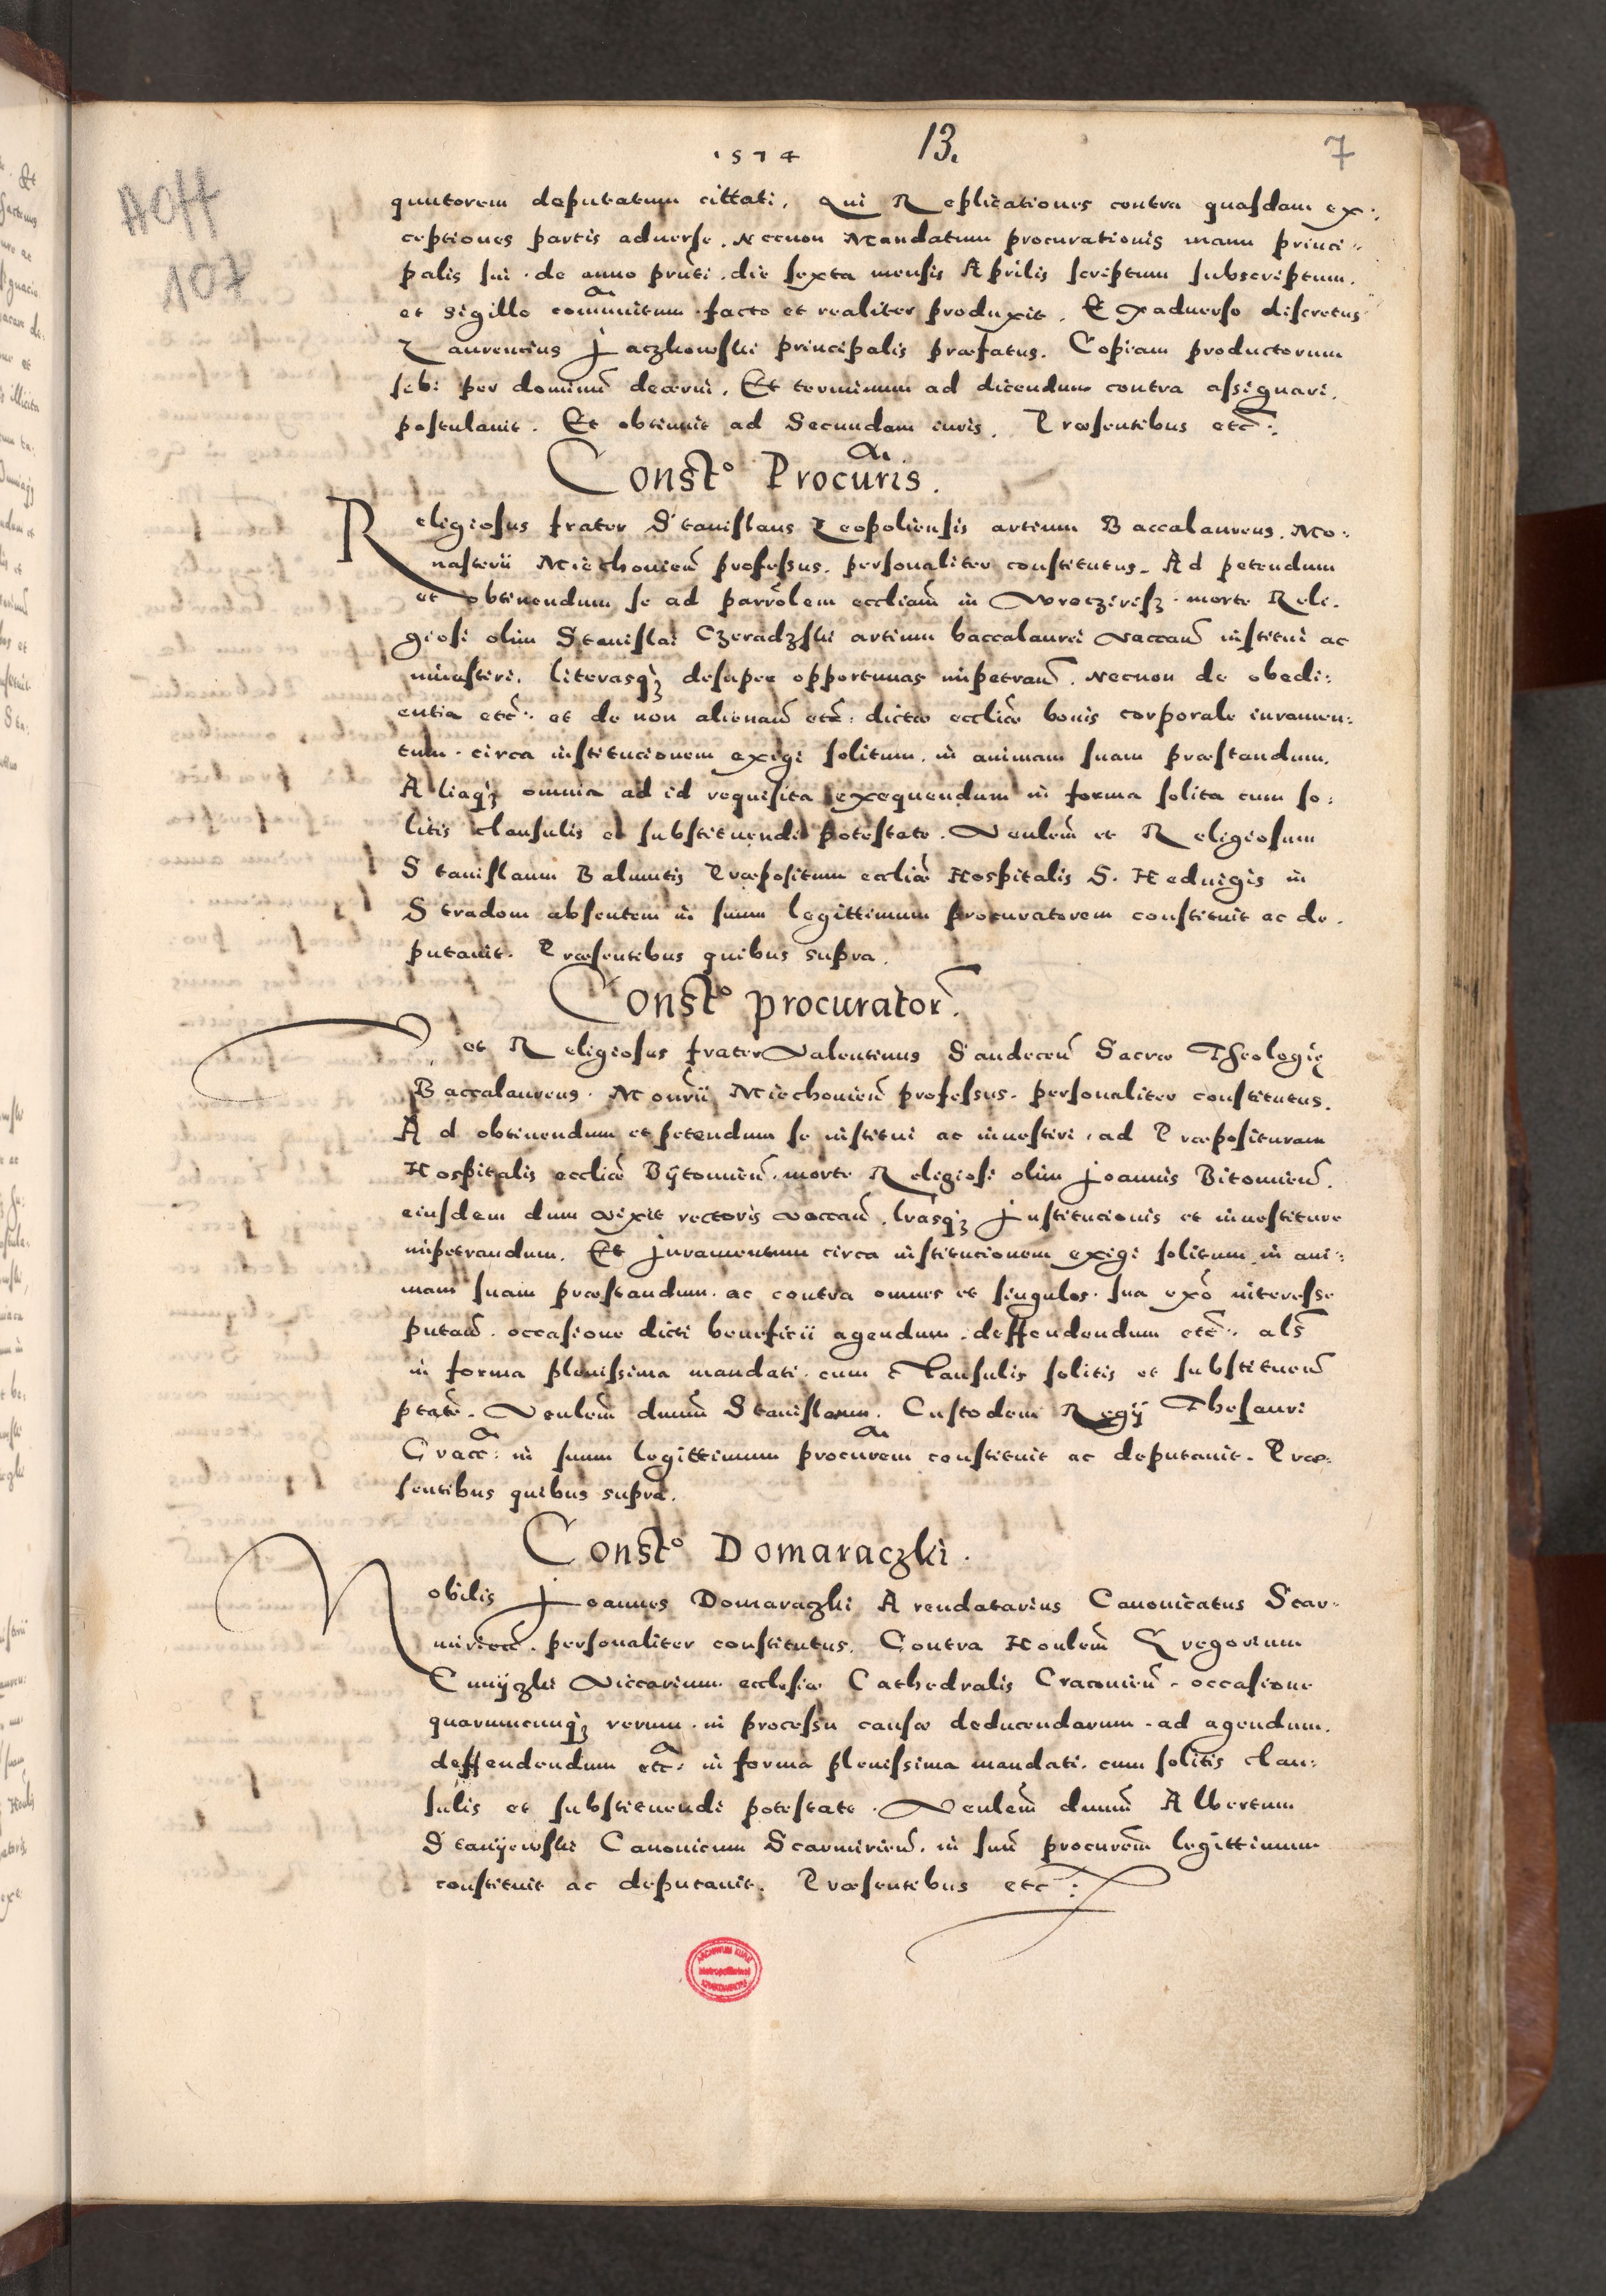 1574 13. 7
AOff
107
quutorem deputatum cittati. Qui Replicationes contra quasdam ex:
ceptiones partis aduerse. Necnon Mandatum procurationis manu princi:
palis sui. de anno prnti. die sexta mensis Aprilis scriptum subscriptum.
et Sigillo communitum. facto et realiter produxit. Exaduerso discretus
Laurencius Jaczkowski principalis præfatus. Copiam productorum
sibi per dominum decerni. Et terminum ad dicendum contra assignari.
postulauit. Et obtinuit ad Secundam iuris. Præsentibus etc:
Constº Procuris.
Religiosus frater Stanislaus Leopoliensis artium Baccalaureus. Mo:
nasterii Miechouien professus. personaliter constitutus. Ad petendum
et obtinendum se ad parrolem eccliam in Wroczirisz. morte Reli:
giosi olim Stanislai Czeradzski artium baccalaurei vaccan institui ac
inuestiri. literasqz desuper opportunas impetran. Necnon de obedi:
entia etc. et de non alienan etc. dictæ eccliæ bonis corporale iuramen:
tum. circa institucionem exigi solitum. in animam suam præstandum.
Aliaqz omnia ad id requisita exequendum in forma solita cum so:
litis clausulis et substituendi potestate. Venlem et Religiosum
Stanislaum Balmutis Præpositum eccliæ Hospitalis S. Heduigis in
Stradom absentem in suum legittimum procuratorem constituit ac de.
putauit. Præsentibus quibus supra.
Constº procurator.
et Religiosus frater Valentinus Sandecen Sacræ Theologię
Baccalaureus. Monrii Miechouien professus. personaliter constitutus.
Ad obtinendum et petendum se institui ac inuestiri. ad Præposituram
Hospitalis eccliæ Bÿtomien. morte Religiosi olim Joannis Bitomien.
eiusdem dum vixit rectoris vaccan. lrasqz Justitucionis et inuestiture
impetrandum. Et Juramentum circa institucionem exigi solitum in ani:
mam suam præstandum. ac contra omnes et singulos. sua exo interesse
putan. occasione dicti beneficii agendum. deffendendum etc. als
in forma plenissima mandati. cum Clausulis solitis et substituen
ptate. Venlem dnum Stanislaum. Custodem Regÿ Thesauri
Cracc: in suum legittimum procurem constituit ac deputauit. Præ:
sentibus quibus supra.
Constº Domaraczki.
Nobilis Joannes Domaraczki Arendatarius Canonicatus Scar:
mirien. personaliter constitutus. Contra Honlem Gregorium
Cunÿczki Viccarium ecclesiæ Cathedralis Cracouien. occasione
quarumcunqz rerum. in processu causæ deducendarum. ad agendum.
deffendendum etc: in forma plenissima mandati. cum solitis clau:
sulis et substituendi potestate. Venlem dnum Albertum
Stanÿewski Canonicum Scarmirien. in suu procurem legittimum
constituit ac deputauit. Præsentibus etc: